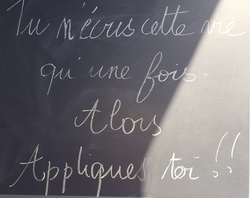 Tu n'écris cette vie
qu'une fois.
Alors
Appliques toi !!